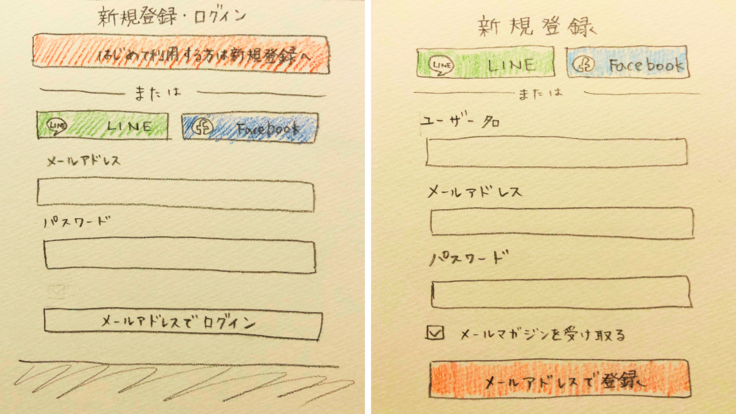 新規登録・ログイン
はじめて利用する方は新規登録へ
または
LINE LINE
Facebook
メールアドレス
パスワード
メールアドレスでログイン
新規登録
LINE LINE
Facebook
または
ユーザー名
メールアドレス
パスワード
メールマガジンを受け取る
メールアドレスで登録